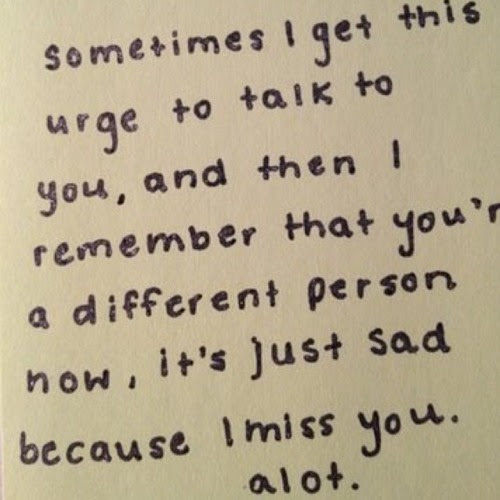 sometimes I get this
urge to talk to
you, and then I
remember that you'r
a different person
now, it's just sad
because I miss you.
alot.